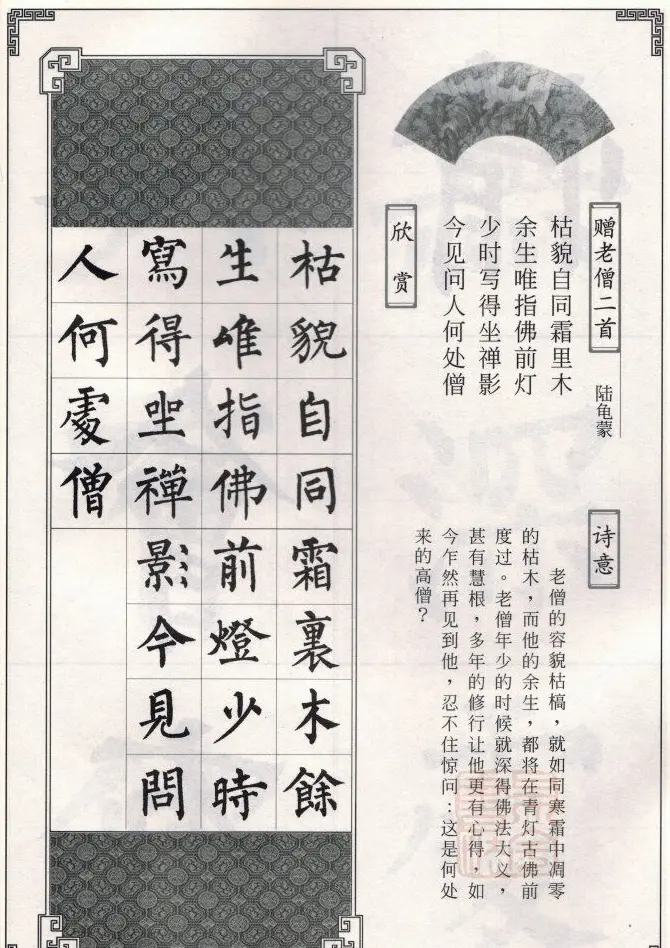 赠老僧二首
陆龟蒙
枯貌自同霜里木
余生唯指佛前灯
少时写得坐禅影
今见问人何处僧
欣赏
诗意
老僧的容貌枯槁，就如同寒霜中凋零
的枯木，而他的余生，都将在青灯古佛前
度过。老僧年少的时候就深得佛法大义，
甚有慧根，多年的修行让他更有心得，如
今乍然再见到他，忍不住惊问：这是何处
来的高僧？
枯貌自同霜裏木餘
生唯指佛前燈少時
寫得坐禪影今見問
人何處僧